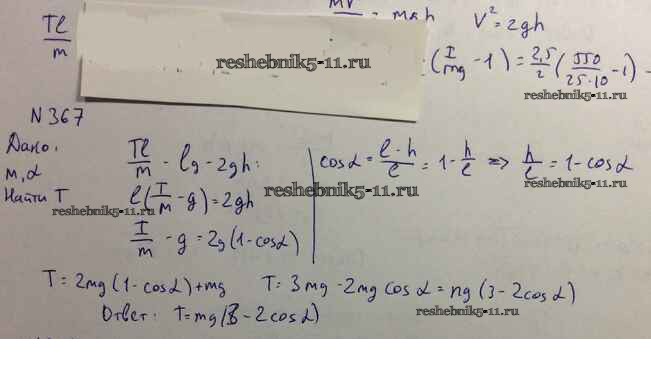 Tl/m
mv²/ = mgh  v² = 2gh
(T/mg - 1) = 2,5/2 (550/25·10 - 1)
reshebnik5-11.ru
reshebnik5-11.ru
N 367
Дано:
m, α
Найти T
reshebnik5-11.ru
Tl/m - lg = 2gh:
l(T/m - g) = 2gh
T/m - g = 2g(1 - cosα)
cosα = l - h/l = 1 - h/l => h/l = 1 - cosα
reshebnik5-11.ru
T = 2mg(1 - cosα) + mg  T = 3mg - 2mg cosα = mg(3 - 2cosα)
Ответ: T = mg(3 - 2cosα)
reshebnik5-11.ru